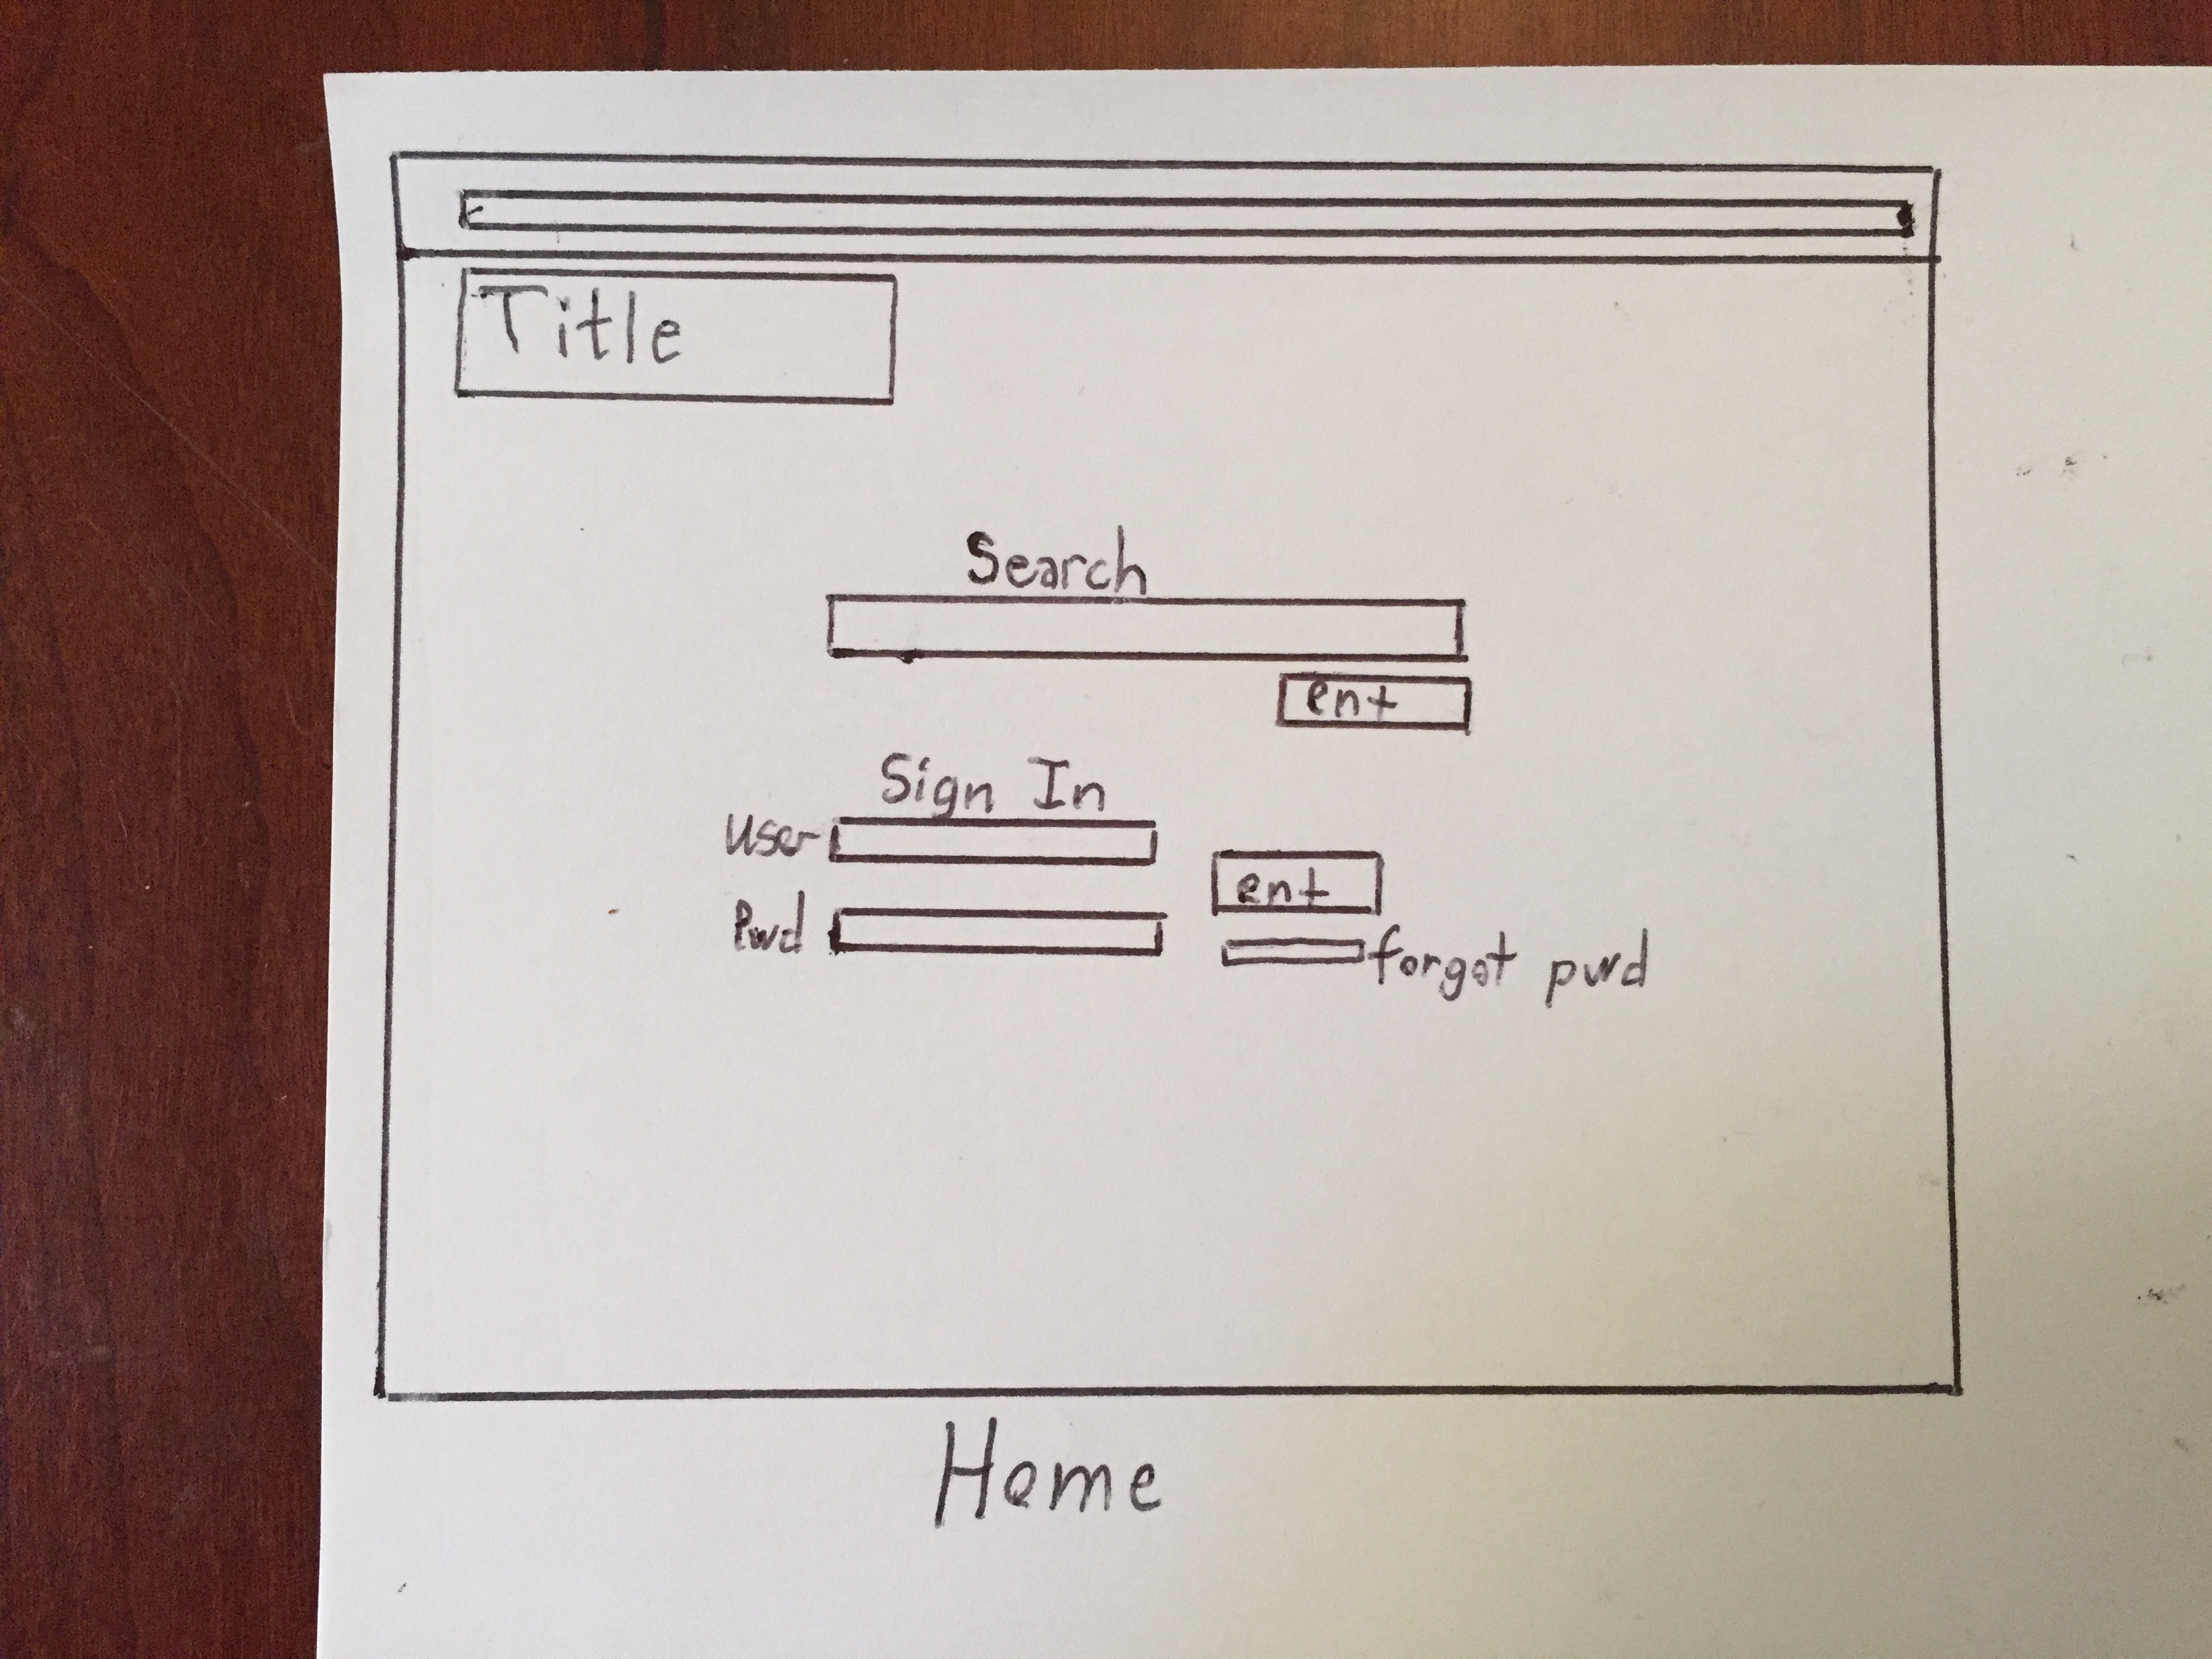 Title
Search
ent
Sign In
User
ent
Pwd
forgot pwd
Home